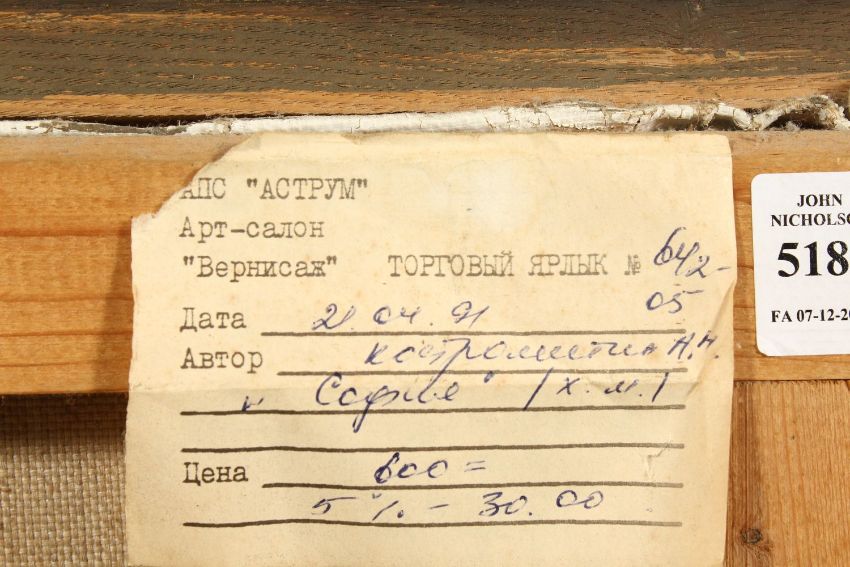 АПС "АСТРУМ"
Арт-салон
"Вернисаж" ТОРГОВЫЙ ЯРЛЫК № 642-
05
Дата 21.04.91
Автор Костромитин Н.Н.
"София" /х.м./
Цена 600=
5% - 30.00
JOHN
NICHOLSO
518
FA 07-12-20